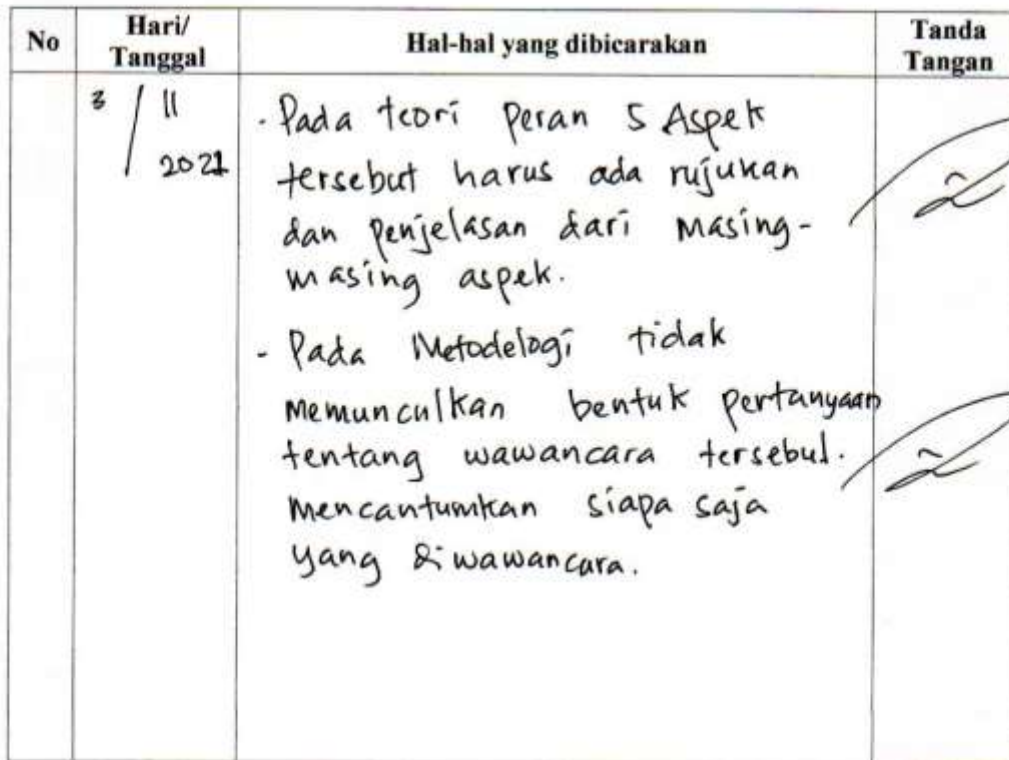 No
Hari/
Tanggal
Hal-hal yang dibicarakan
Tanda
Tangan
3 / 11
2021
- Pada teori Peran 5 Aspek
tersebut harus ada rujukan
dan Penjelasan dari Masing-
masing aspek.
- Pada Metodelogi tidak
memunculkan bentuk pertanyaan
tentang wawancara tersebut.
Mencantumkan siapa saja
yang diwawancara.